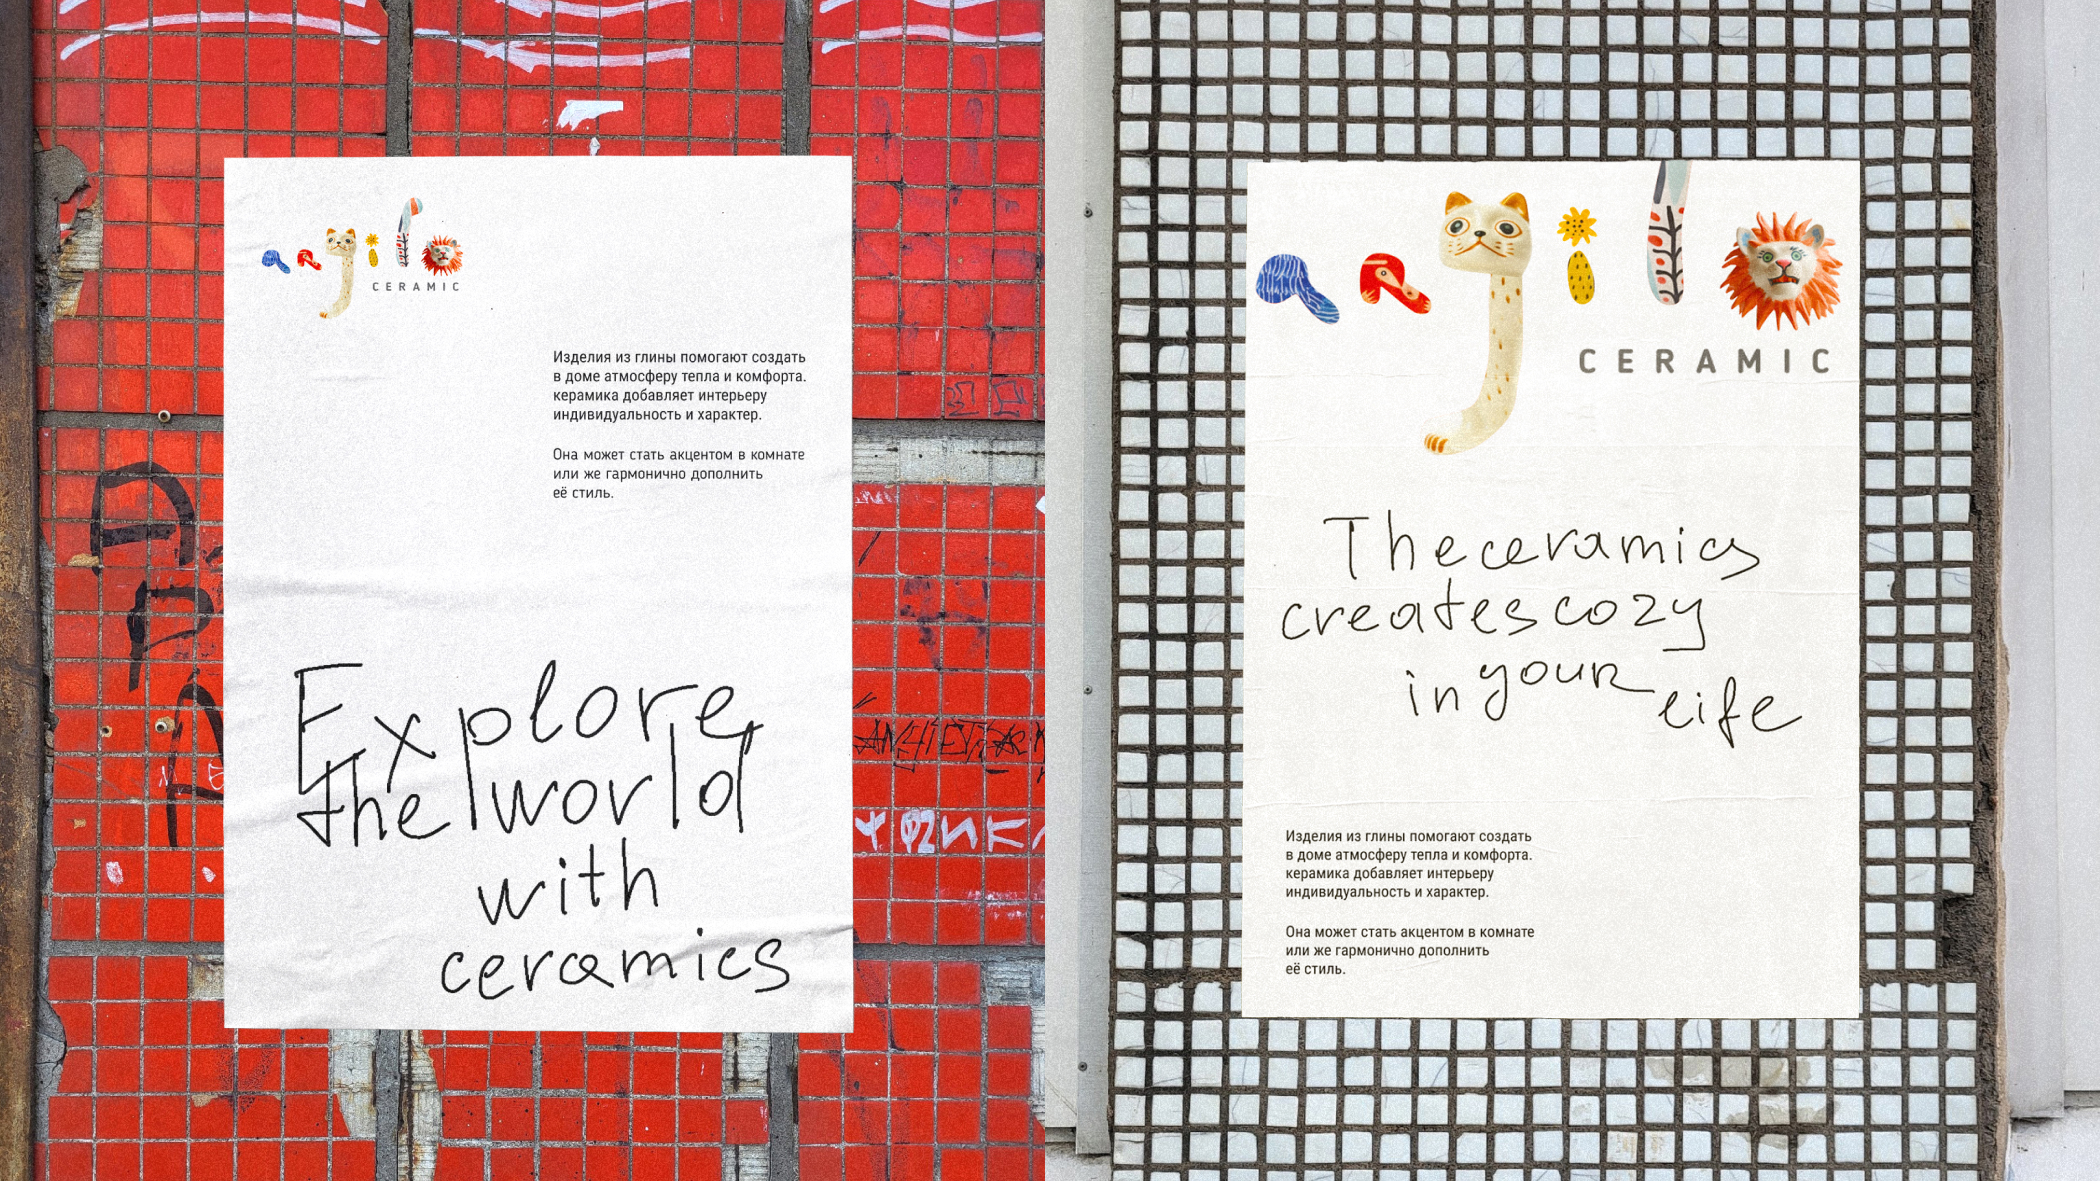 argilo
CERAMIC
Изделия из глины помогают создать
в доме атмосферу тепла и комфорта.
керамика добавляет интерьеру
индивидуальность и характер.
Она может стать акцентом в комнате
или же гармонично дополнить
её стиль.
Explore
the world
with
ceramics
argilo
CERAMIC
The ceramics
creates cozy
in your
life
Изделия из глины помогают создать
в доме атмосферу тепла и комфорта.
керамика добавляет интерьеру
индивидуальность и характер.
Она может стать акцентом в комнате
или же гармонично дополнить
её стиль.